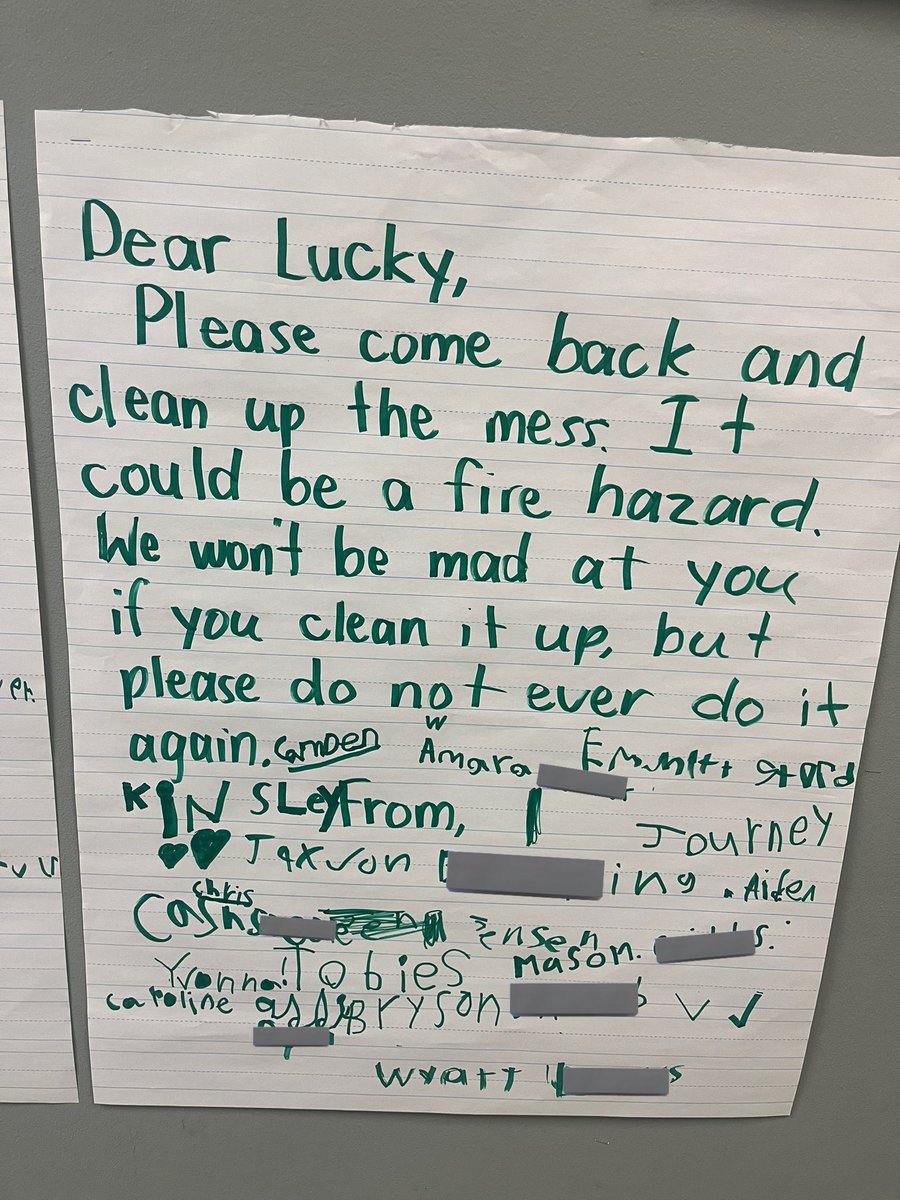 Dear Lucky,
Please come back and
clean up the mess. It
could be a fire hazard.
We won't be mad at you
if you clean it up, but
please do not ever do it
again. Camden W Amara
KINSLEY From, Journey
Jaxvon ing . Aiden
Chris
Cash Jensen Mason. s.
Yvonna! Tobies
caroline BRYSON
Wyatt s
er.